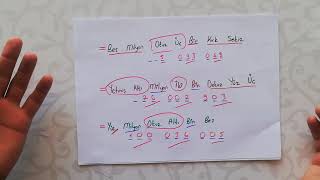 = Beş Milyon Otuz Üç Bin Kırk Sekiz
- - 5 0 3 3 0 4 8
= Yetmiş Altı Milyon İki Bin Dokuz Yüz Üç
- 7 6 0 0 2 9 0 3
= Yüz Milyon Otuz Altı Bin Beş
1 0 0 0 3 6 0 0 5